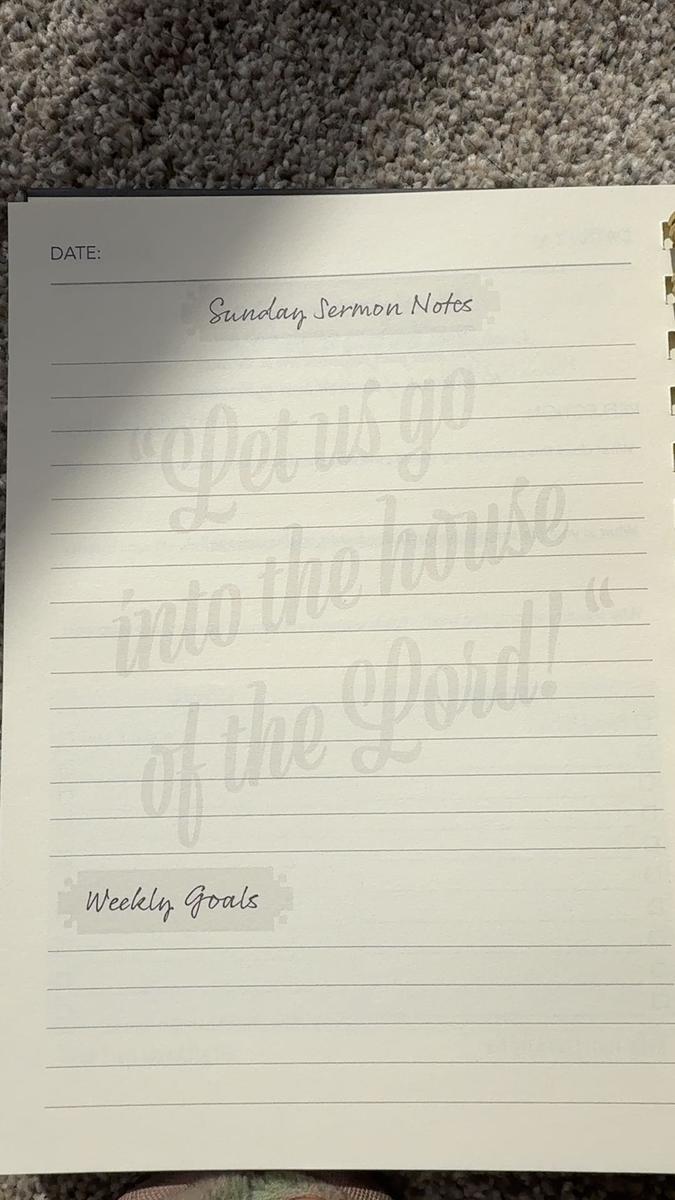 DATE:
Sunday Sermon Notes
“Let us go
into the house
of the Lord! “
Weekly Goals